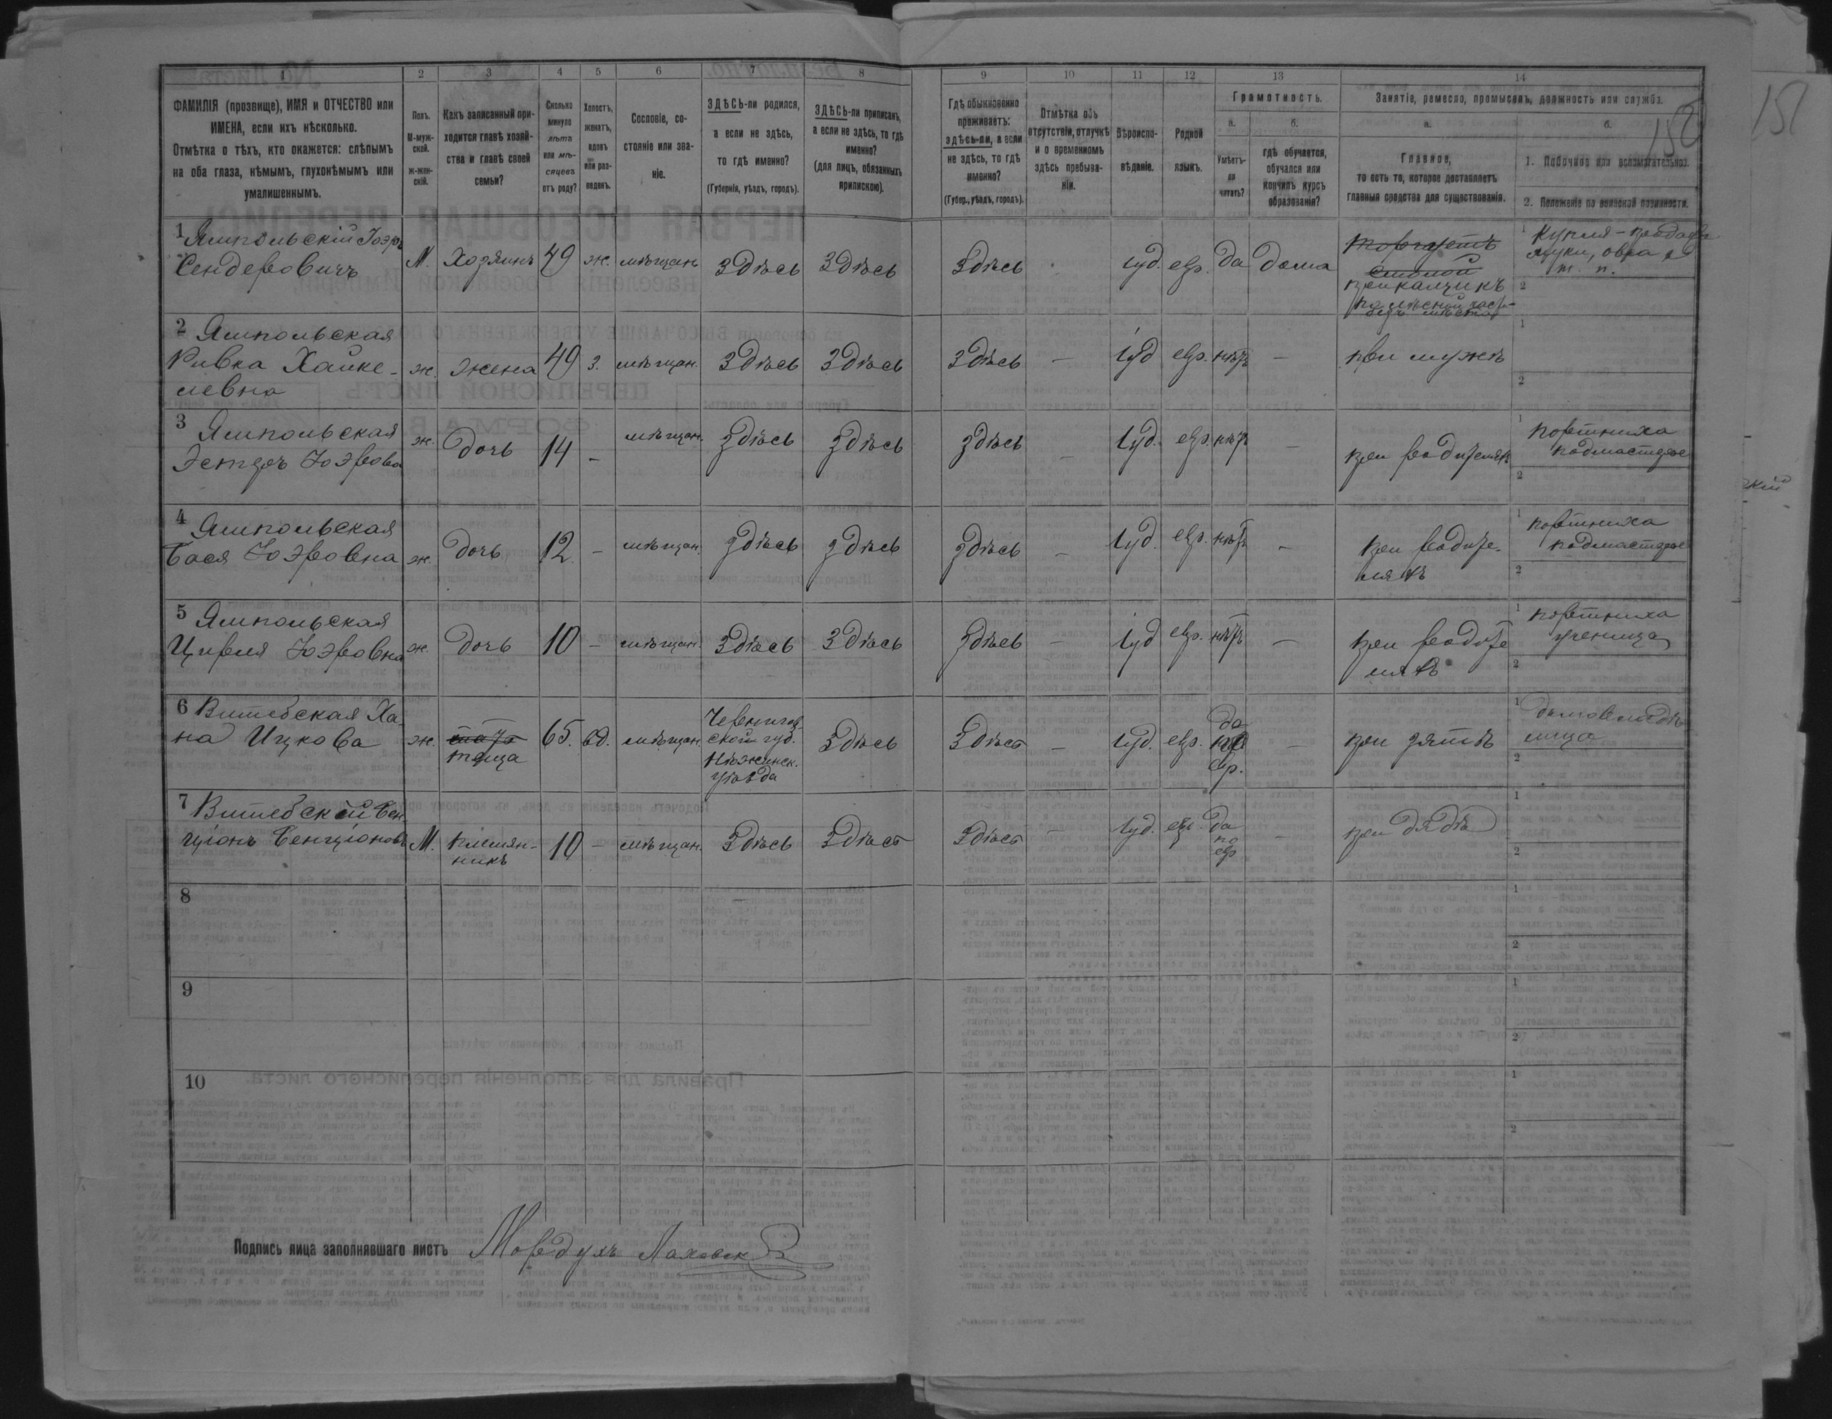 1 2 3 4 5 6 7 8 9 10 11 12 13 14
ФАМИЛІЯ (прозвище), ИМЯ и ОТЧЕСТВО или
ИМЕНА, если ихъ нѣсколько.
Отмѣтка о тѣхъ, кто окажется: слѣпымъ
на оба глаза, нѣмымъ, глухонѣмымъ или
умалишеннымъ.
Полъ.
М-муж-
ской.
ж-жен-
скій.
Какъ записанный при-
ходится главѣ хозяй-
ства и главѣ своей
семьи?
Сколько
минуло
лѣтъ
или мѣ-
сяцевъ
отъ роду?
Холостъ,
женатъ,
вдовъ
или раз-
веденъ.
Сословіе, со-
стояніе или зва-
ніе.
ЗДѢСЬ-ли родился,
а если не здѣсь,
то гдѣ именно?
(Губернія, уѣздъ, городъ).
ЗДѢСЬ-ли приписанъ,
а если не здѣсь, то гдѣ
именно?
(для лицъ, обязанныхъ
припискою).
Гдѣ обыкновенно
проживаетъ:
здѣсь-ли, а если
не здѣсь, то гдѣ
именно?
(Губер., уѣздъ, городъ).
Отмѣтка объ
отсутствіи, отлучкѣ
и о временномъ
здѣсь пребыва-
ніи.
Вѣроиспо-
вѣданіе.
Родной
языкъ.
Грамотность.
а.
Умѣетъ-
ли
читать?
б.
гдѣ обучается,
обучался или
кончилъ курсъ
образованія?
Занятіе, ремесло, промыселъ, должность или служба.
а.
Главное,
то есть то, которое доставляетъ
главныя средства для существованія.
б.
1. Побочное или вспомогательное.
2. Положеніе по воинской повинности.
151
1 Ямпольскій Іоэръ
Сендеровичъ
М. Хозяинъ 49 ж. мѣщан. Здѣсь Здѣсь Здѣсь Іуд. евр. да дома
торгуетъ
прикащикъ
Купля-продажа
муки, овса и
т. п.
2 Ямпольская
Ривка Хайке-
левна
ж. жена 49 з. мѣщан. Здѣсь Здѣсь Здѣсь — Іуд евр. нѣтъ — при мужѣ
3 Ямпольская
Эстеръ Іоэрова
ж. дочь 14 — мѣщан. Здѣсь Здѣсь Здѣсь — Іуд. евр. нѣтъ — при родителяхъ
портниха
подмастерье
4 Ямпольская
Бася Іоэровна
ж. дочь 12 — мѣщан. Здѣсь Здѣсь Здѣсь — Іуд. евр. нѣтъ — при родите-
ляхъ
портниха
подмастерье
5 Ямпольская
Цирля Іоэровна
ж. дочь 10 — мѣщан. Здѣсь Здѣсь Здѣсь — Іуд евр. нѣтъ — при родите
ляхъ
портниха
ученица
6 Витебская Ха-
на Ицкова
ж. теща 65. вд. мѣщан.
Чернигов
ской губ.
Нѣжинск.
уѣзда
Здѣсь Здѣсь — Іуд. евр. да
по
евр.
— при зятѣ
домовладѣ-
лица
7 Витебскій Бен
ціонъ Бенціоновъ
М. племян-
никъ
10 — мѣщан. Здѣсь Здѣсь Здѣсь — Іуд. евр. да
по
евр
— при дядѣ
8
9
10
Подпись лица заполнявшаго листъ Мордухъ